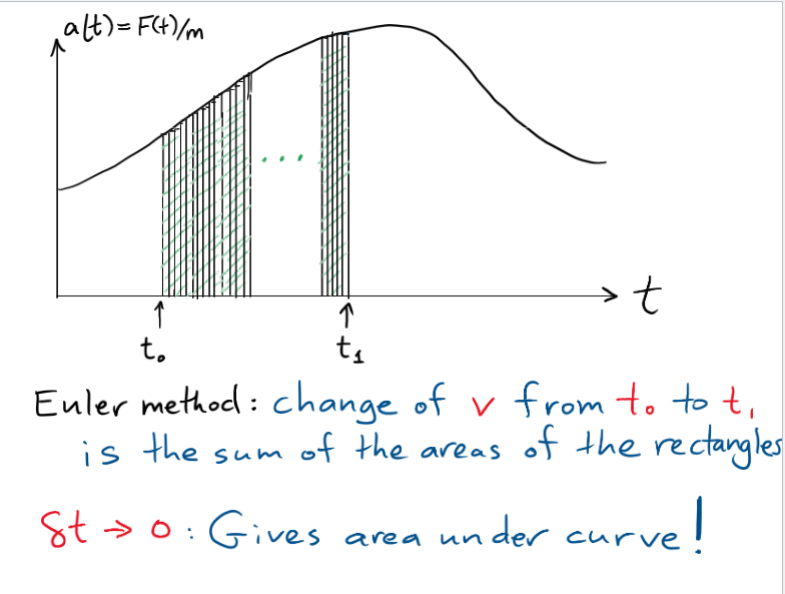 a(t) = F(t)/m
...
t
t₀
t₁
Euler method: change of v from t₀ to t₁
is the sum of the areas of the rectangles
δt → 0 : Gives area under curve!